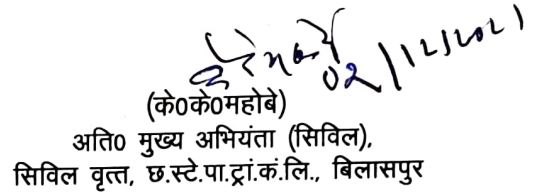 02/12/2021
(के0के0महोबे)
अति0 मुख्य अभियंता (सिविल),
सिविल वृत्त, छ.स्टे.पा.ट्रां.कं.लि., बिलासपुर